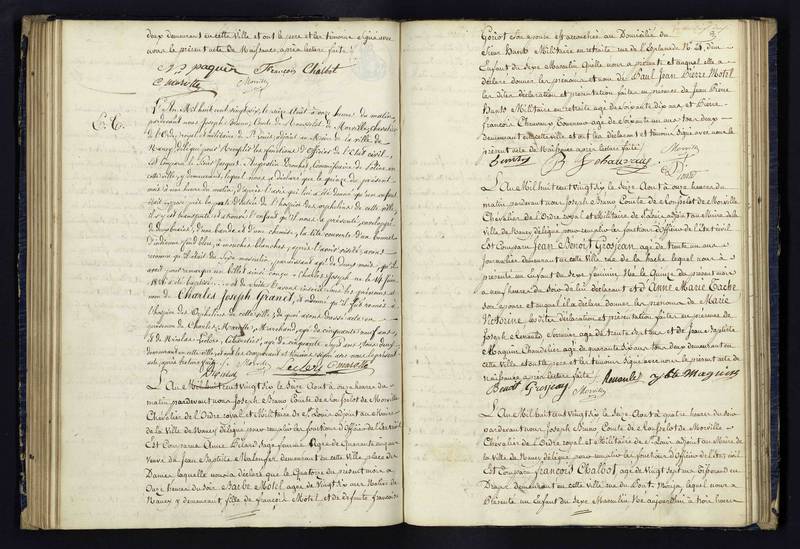 deux demeurant en cette Ville et ont le pere et les témoins signé avec
nous le présent acte de Naissance après lecture faite
paquer François Chalbot
Cmarotte Morville
L'An Mil huit cent vingt six, le seize Août à onze heures du matin,
pardevant nous Joseph Bruno, Comte de Morville, chevalier
de l'Ordre royal et militaire de St Louis, adjoint au Maire de la ville de
Nancy, délégué pour remplir les fonctions d'Officier de l'Etat civil,
est comparu le Sieur Jacques Augustin Commissaire de Police en
cette ville, y demeurant, lequel nous a déclaré que le quinze du présent
mois à une heure du matin, d'après l'avis qui lui a été donné qu'un enfant
était exposé près la porte d'entrée de l'hospice des orphelins de cette ville,
il s'y est transporté et a trouvé l'enfant qu'il nous a présenté, enveloppé
d'une bande et d'une chemise, la tête couverte d'un bonnet
d'indienne fond bleu, à mouches blanches, après l'avoir visité, avons
reconnu qu'il était du sexe masculin, paraissant âgé de deux mois, qu'il
avait pour marque un billet ainsi conçu « Charles Joseph né le 14 juin
1826 est baptisé
nom de Charles Joseph Granet, et ordonné qu'il fût remis à
l'hospice des Orphelins de cette ville; de quoi avons dressé acte en
présence de Charles Marotte, Marchand, âgé de cinquante neuf ans,
et de Nicolas Leclerc, âgé de cinquante sept ans, tous deux
demeurant en cette ville, et ont les comparant et témoins signé avec nous le présent
acte, après lecture faite. Morville
Leclerc Cmarotte
L'An Mil huit cent vingt six le Seize Aout à onze heures du
matin pardevant nous Joseph Bruno Comte de Rousselot de Morville
Chevalier de l'Ordre royal et Militaire de St Louis adjoint au Maire
de la Ville de Nancy délégué pour remplir les fonctions d'Officier de l'Etat civil
Est Comparue Anne Picard Sage femme Agée de quarante
veuve de Jean Baptiste demeurant en cette Ville place des
Dames laquelle nous a déclaré que le Quatorze du présent mois à
Onze heures du soir Barbe Motel agée de Vingt six ans Native de
Nancy y demeurant, fille de françois Motel et de défunte françoise
Goriot Son epouse est accouchée au Domicile du
Sieur Hants Militaire en retraite rue de l'Esplanade N° 21, d'un
Enfant du Sexe Masculin Quelle nous a présenté et auquel elle a
déclaré donner les prénoms et nom de Paul Jean Pierre Motel
les dites déclaration et présentation faites en présence de Jean Pierre
Hants Militaire en retraite agé de soixante dix ans, et Pierre
françois Commis agé de Soixante un ans tous deux
demeurant en cette ville et ont les déclarant et témoins Signé avec nous le
présent acte de Naissance après lecture faite
Morville
L'An Mil huit cent vingt six le Seize Aout à onze heures du
matin pardevant nous Joseph Bruno Comte de Rousselot de Morville
Chevalier de l'Ordre royal et Militaire de St Louis adjoint au Maire de la
Ville de Nancy délégué pour remplir les fonctions d'Officier de l'Etat civil
est Comparu Jean Benoit Grosjean agé de trente un ans
journalier demeurant en cette Ville rue de la hache lequel nous à
présenté un Enfant du Sexe féminin Née le Quinze du présent mois
à neuf heures du soir de lui déclarant et d'Anne Marie Cache
Son epouse et auquel il a déclaré donner les prénoms de Marie
Victorine, les dites déclaration et présentation faites en présence de
Joseph Renauld Serrurier agé de trente Sept ans et de Jean Baptiste
Magnien Chandelier agé de quarante six ans tous deux demeurant en
cette Ville et ont le pere et les témoins Signé avec nous le présent acte de
Naissance après lecture faite
Benoit Grosjean Renauld jbte Magnien
Morville
L'An Mil huit cent Vingt Six le Seize Aout à quatre heures du Soir
pardevant nous Joseph Bruno Comte de Rousselot de Morville
Chevalier de l'Ordre royal et Militaire de St Louis adjoint au Maire de
la Ville de Nancy délégué pour remplir les fonctions d'Officier de l'Etat civil
Est Comparu françois Chalbot agé de Vingt sept ans
demeurant en cette Ville rue du Pont lequel nous a
Présenté un Enfant du Sexe Masculin Né aujourd'hui à trois heures